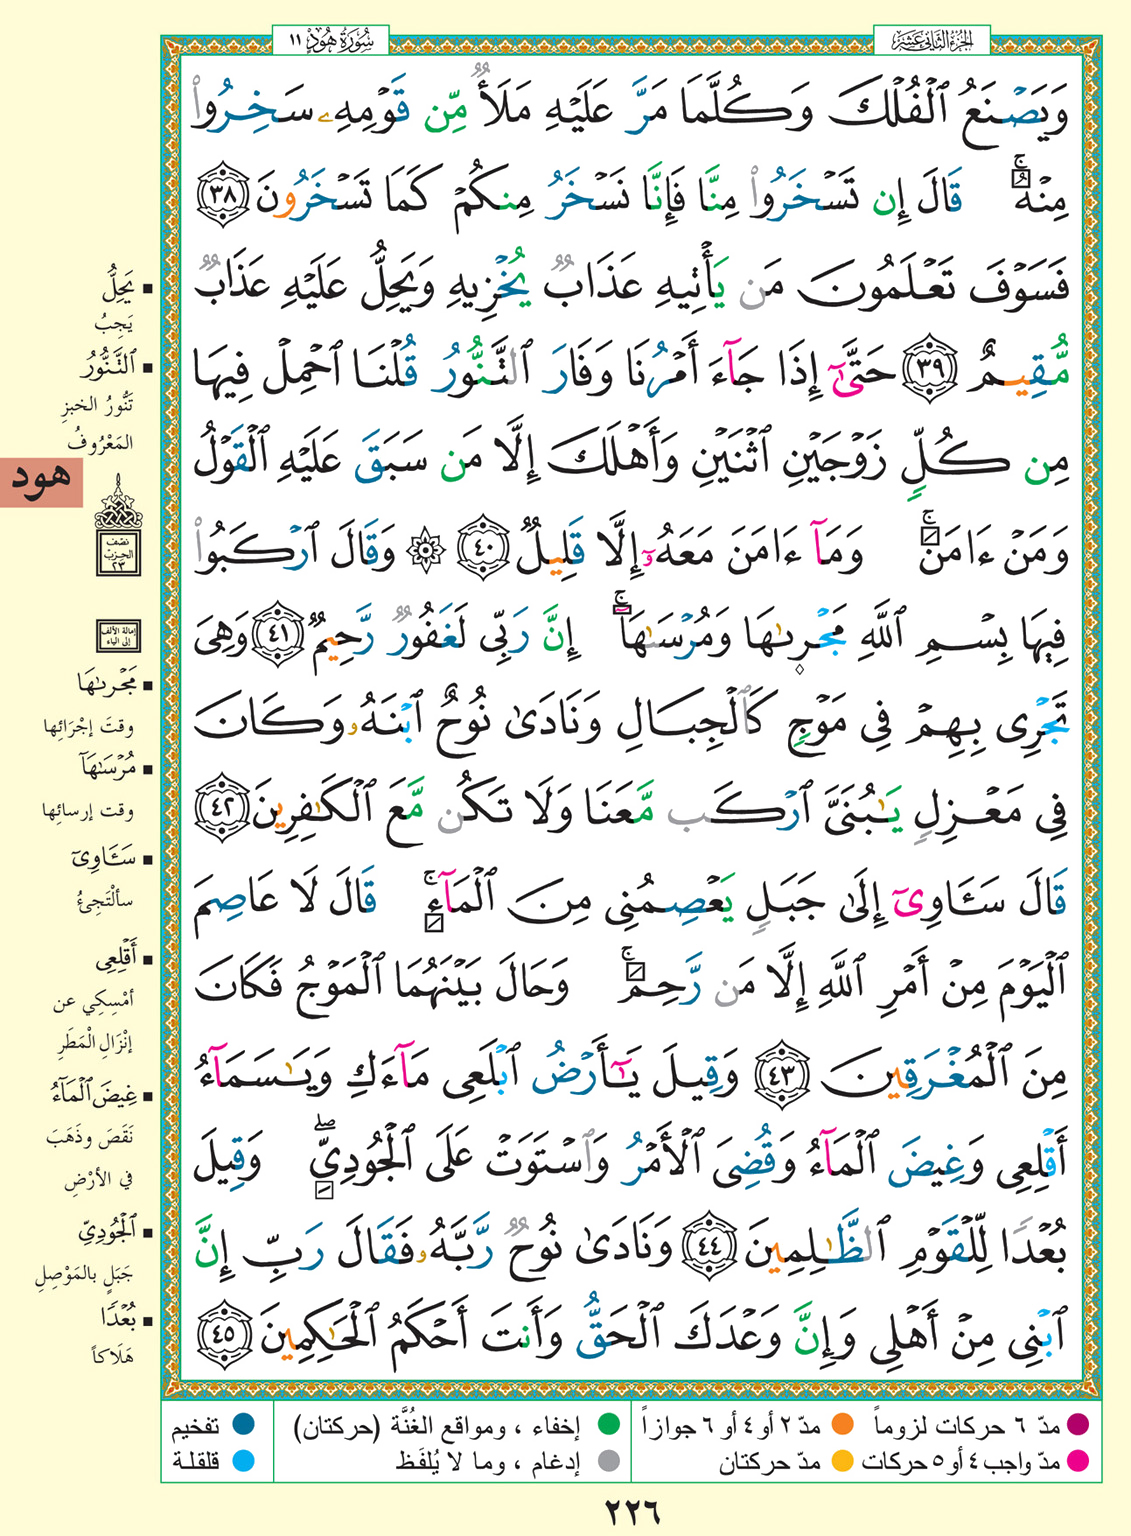 الجزء الثاني عشر
سُورَةُ هُودٍ ١١
وَيَصۡنَعُ ٱلۡفُلۡكَ وَكُلَّمَا مَرَّ عَلَيۡهِ مَلَأٞ مِّن قَوۡمِهِۦ سَخِرُواْ
مِنۡهُۚ قَالَ إِن تَسۡخَرُواْ مِنَّا فَإِنَّا نَسۡخَرُ مِنكُمۡ كَمَا تَسۡخَرُونَ ٣٨
فَسَوۡفَ تَعۡلَمُونَ مَن يَأۡتِيهِ عَذَابٞ يُخۡزِيهِ وَيَحِلُّ عَلَيۡهِ عَذَابٞ
مُّقِيمٌ ٣٩ حَتَّىٰٓ إِذَا جَآءَ أَمۡرُنَا وَفَارَ ٱلتَّنُّورُ قُلۡنَا ٱحۡمِلۡ فِيهَا
مِن كُلّٖ زَوۡجَيۡنِ ٱثۡنَيۡنِ وَأَهۡلَكَ إِلَّا مَن سَبَقَ عَلَيۡهِ ٱلۡقَوۡلُ
وَمَنۡ ءَامَنَۚ وَمَآ ءَامَنَ مَعَهُۥٓ إِلَّا قَلِيلٞ ٤٠ ۞ وَقَالَ ٱرۡكَبُواْ
فِيهَا بِسۡمِ ٱللَّهِ مَجۡر۪ىٰهَا وَمُرۡسَىٰهَآۚ إِنَّ رَبِّي لَغَفُورٞ رَّحِيمٞ ٤١ وَهِيَ
تَجۡرِي بِهِمۡ فِي مَوۡجٖ كَٱلۡجِبَالِ وَنَادَىٰ نُوحٌ ٱبۡنَهُۥ وَكَانَ
فِي مَعۡزِلٖ يَٰبُنَيَّ ٱرۡكَب مَّعَنَا وَلَا تَكُن مَّعَ ٱلۡكَٰفِرِينَ ٤٢
قَالَ سَـَٔاوِيٓ إِلَىٰ جَبَلٖ يَعۡصِمُنِي مِنَ ٱلۡمَآءِۚ قَالَ لَا عَاصِمَ
ٱلۡيَوۡمَ مِنۡ أَمۡرِ ٱللَّهِ إِلَّا مَن رَّحِمَۚ وَحَالَ بَيۡنَهُمَا ٱلۡمَوۡجُ فَكَانَ
مِنَ ٱلۡمُغۡرَقِينَ ٤٣ وَقِيلَ يَٰٓأَرۡضُ ٱبۡلَعِي مَآءَكِ وَيَٰسَمَآءُ
أَقۡلِعِي وَغِيضَ ٱلۡمَآءُ وَقُضِيَ ٱلۡأَمۡرُ وَٱسۡتَوَتۡ عَلَى ٱلۡجُودِيِّۖ وَقِيلَ
بُعۡدٗا لِّلۡقَوۡمِ ٱلظَّٰلِمِينَ ٤٤ وَنَادَىٰ نُوحٞ رَّبَّهُۥ فَقَالَ رَبِّ إِنَّ
ٱبۡنِي مِنۡ أَهۡلِي وَإِنَّ وَعۡدَكَ ٱلۡحَقُّ وَأَنتَ أَحۡكَمُ ٱلۡحَٰكِمِينَ ٤٥
يَحِلُّ
يَجِبُ
ٱلتَّنُّورُ
تَنُّورُ الخبزِ
المَعْرُوفُ
هود
نصف
الحزب
٢٣
إمالة الألف
إلى الياء
مَجۡر۪ىٰهَا
وقتَ إجْرَائِها
مُرۡسَىٰهَآ
وقت إرسائِها
سَـَٔاوِيٓ
سألْتَجِئُ
أَقۡلِعِي
أمْسِكِي عن
إنْزَالِ الْمَطَرِ
غِيضَ ٱلۡمَآءُ
نَقَصَ وذَهَبَ
في الأرْضِ
ٱلۡجُودِيِّ
جَبَلٍ بالمَوْصِلِ
بُعۡدٗا
هَلَاكاً
مدّ ٦ حركات لزوماً
مدّ ٢ أو ٤ أو ٦ جوازاً
إخفاء ، ومواقع الغُنَّة (حركتان)
تفخيم
مدّ واجب ٤ أو ٥ حركات
مدّ حركتان
إدغام ، وما لا يُلفَظ
قلقلة
٢٢٦